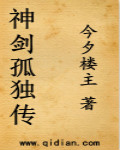 神剑孤独传
今夕楼主 著
www.qidian.com